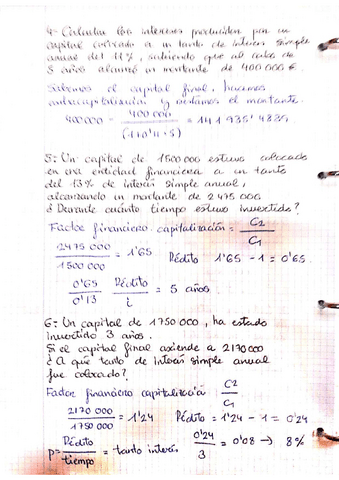 4- Calcular los intereses producidos por un
capital colocado a un tanto de interés simple
anual del 11%, sabiendo que al cabo de
5 años alcanzó un montante de 400 000 €.
Sabemos el capital final, hacemos
y restamos el montante.
400 000 - 400 000 / (1+0'11·5) = 141 935'4839
5- Un capital de 1500 000 estuvo colocado
en una entidad financiera a un tanto
del 13% de interés simple anual,
alcanzando un montante de 2 475 000
¿Durante cuánto tiempo estuvo invertido?
Factor financiero capitalización = C2 / C1
2475 000 / 1500 000 = 1'65 Rédito 1'65 - 1 = 0'65
0'65 / 0'13 Rédito / i = 5 años
6- Un capital de 1 750 000, ha estado
invertido 3 años.
Si el capital final asciende a 2170000
¿A qué tanto de interés simple anual
fue colocado?
Factor financiero capitalización C2 / C1
2170.000 / 1750 000 = 1'24 Rédito = 1'24 - 1 = 0'24
P = Rédito / tiempo = tanto interés 0'24 / 3 = 0'08 → 8%